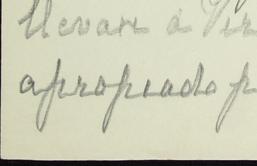 llevare á Vir
apropiado p